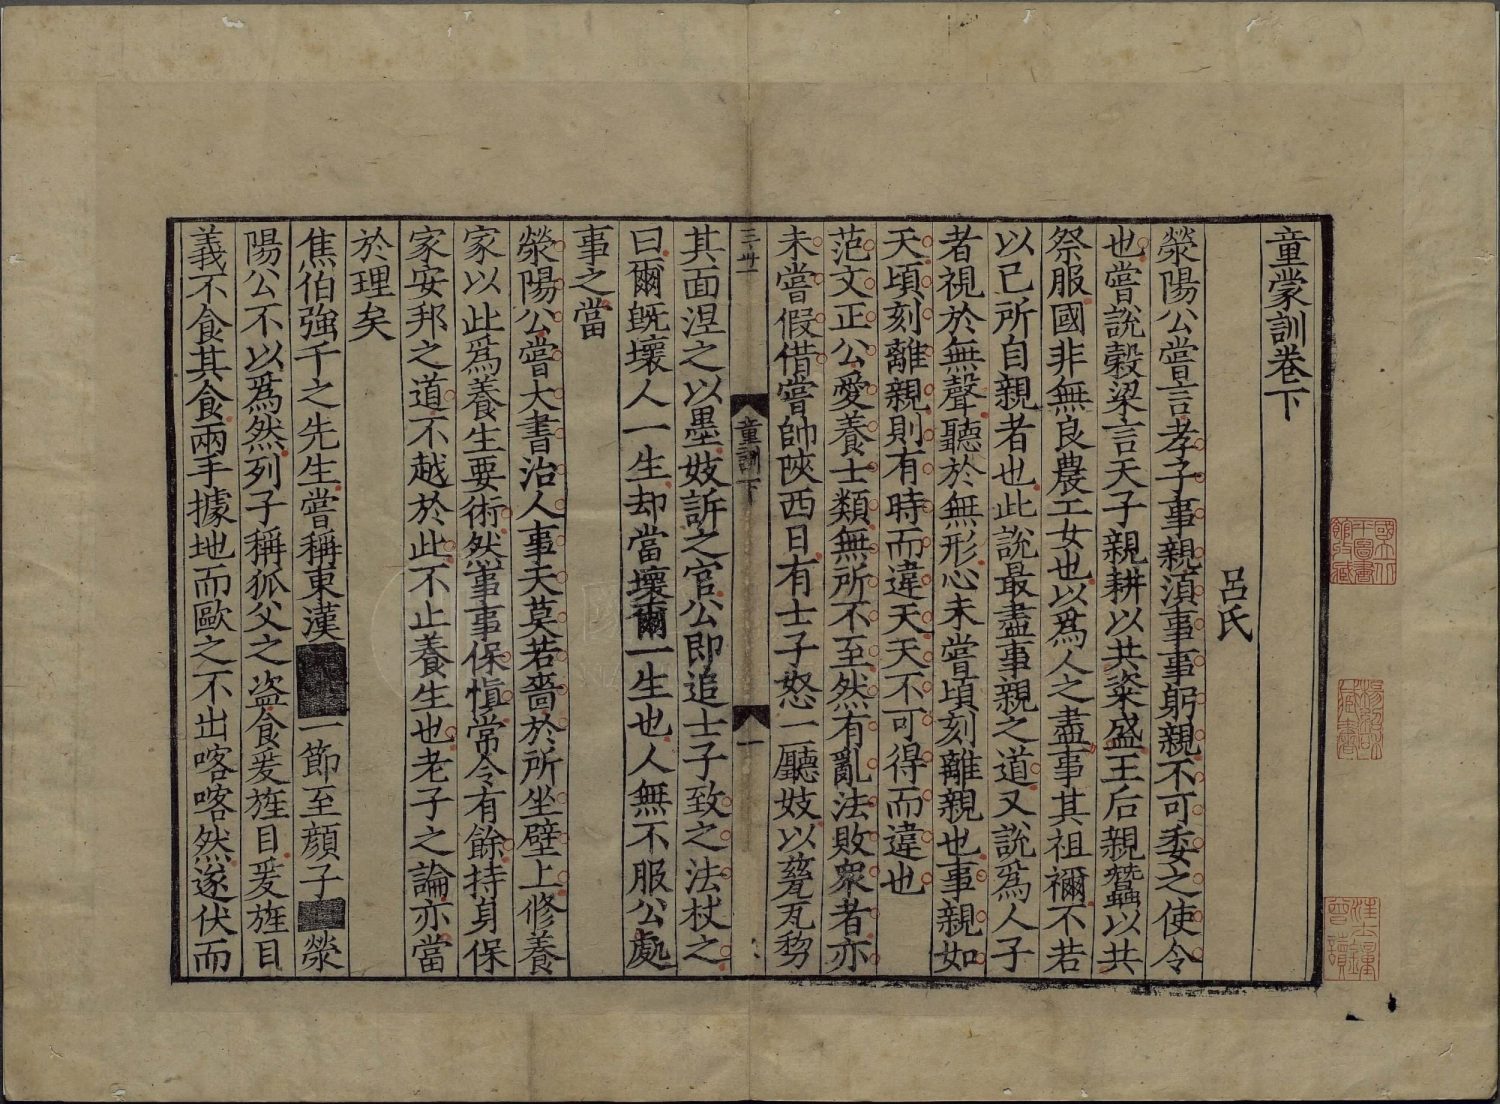 童蒙訓卷下
呂氏
滎陽公嘗言孝子事親須事事躬親不可委之使令
也嘗說穀梁言天子親耕以共粢盛王后親蠶以共
祭服國非無良農工女也以爲人之盡事其祖禰不若
以已所自親者也此說最盡事親之道又說爲人子
者視於無聲聽於無形心未嘗頃刻離親也事親如
天頃刻離親則有時而違天天不可得而違也
范文正公愛養士類無所不至然有亂法敗衆者亦
未嘗假借嘗帥陝西日有士子怒一廳妓以甆瓦劵
童訓下
一
其面涅之以墨妓訴之官公即追士子致之法杖之
曰爾旣壞人一生却當壞爾一生也人無不服公處
事之當
滎陽公嘗大書治人事天莫若嗇於所坐壁上修養
家以此爲養生要術然事事保愼常令有餘持身保
家安邦之道不越於此不止養生也老子之論亦當
於理矣
焦伯強千之先生嘗稱東漢一節至顔子滎
陽公不以爲然列子稱狐父之盜食爰旌目爰旌目
義不食其食兩手據地而歐之不出喀喀然遂伏而
國立中
央圖書
館收藏